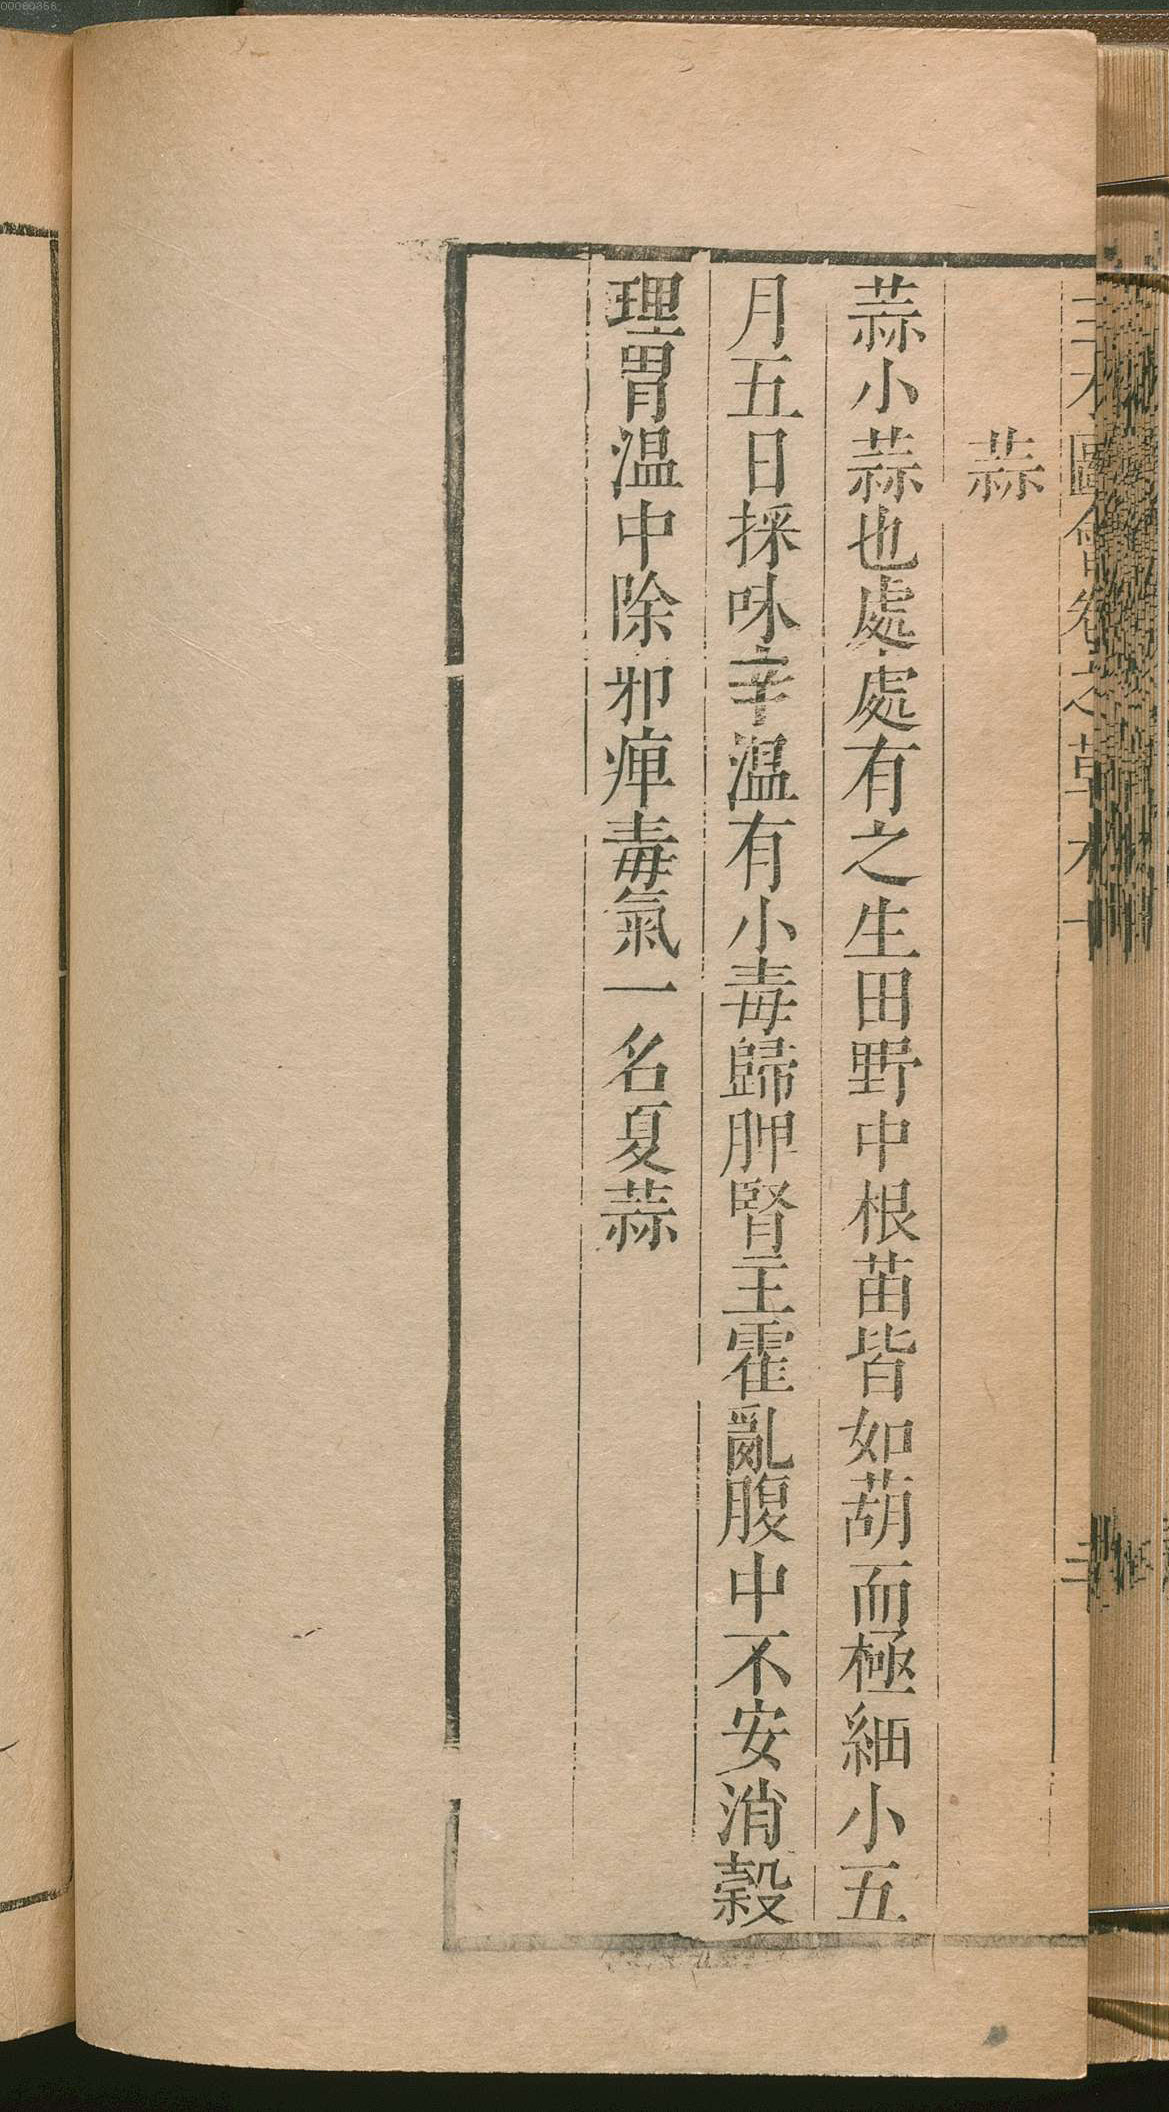 蒜
蒜小蒜也處處有之生田野中根苗皆如葫而極細小五
月五日採味辛溫有小毒歸脾腎主霍亂腹中不安消穀
理胃溫中除邪痺毒氣一名夏蒜
三才圖會卷之草木十
00060856